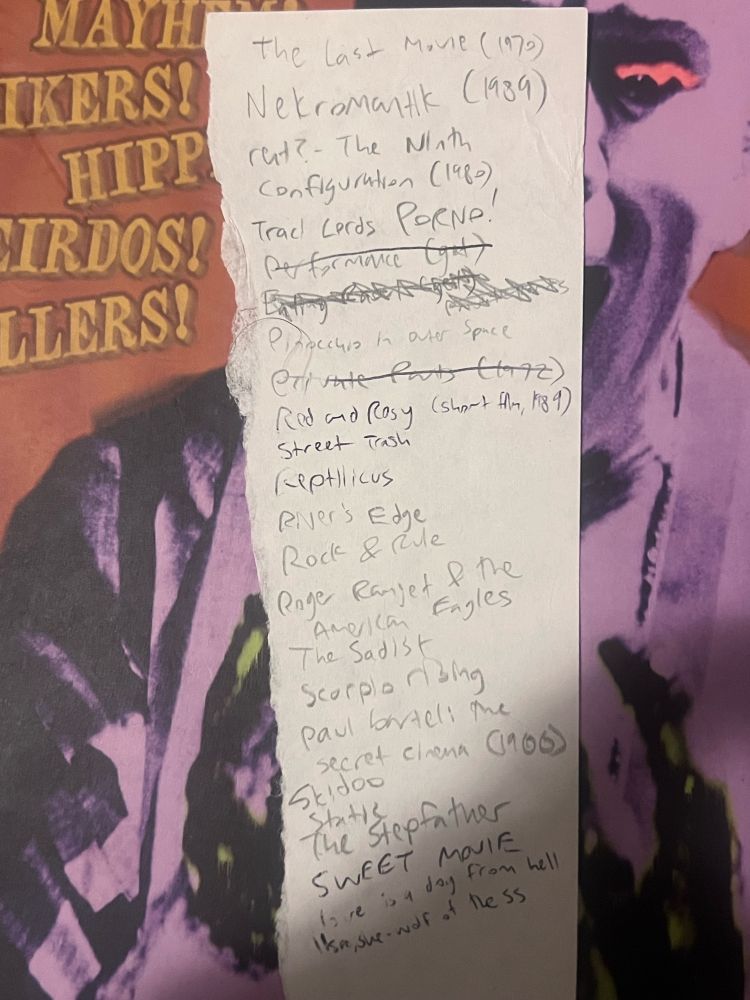 MAYHEM!
IKERS!
HIPP
EIRDOS!
LLERS!
The Last Movie (1970)
Nekromantik (1989)
rent? - The Ninth
Configuration (1980)
Traci Lords PORNO!
Performance (got)
Eating
Pinocchio in outer Space
Private Parts (1972)
Rod and Rosy (short film, 1989)
Street Trash
Reptilicus
River's Edge
Rock & Rule
Roger Ranjet & the
American Eagles
The Sadist
Scorpio rising
paul bartel: the
secret cinema (1966)
Skidoo
Static
The Stepfather
SWEET MOVIE
love is a dog from hell
Ilsa, she-wolf of the SS